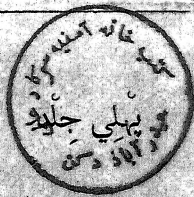 کتب خانہ آصفیہ سرکار
پہلی جلد
حیدرآباد دکن